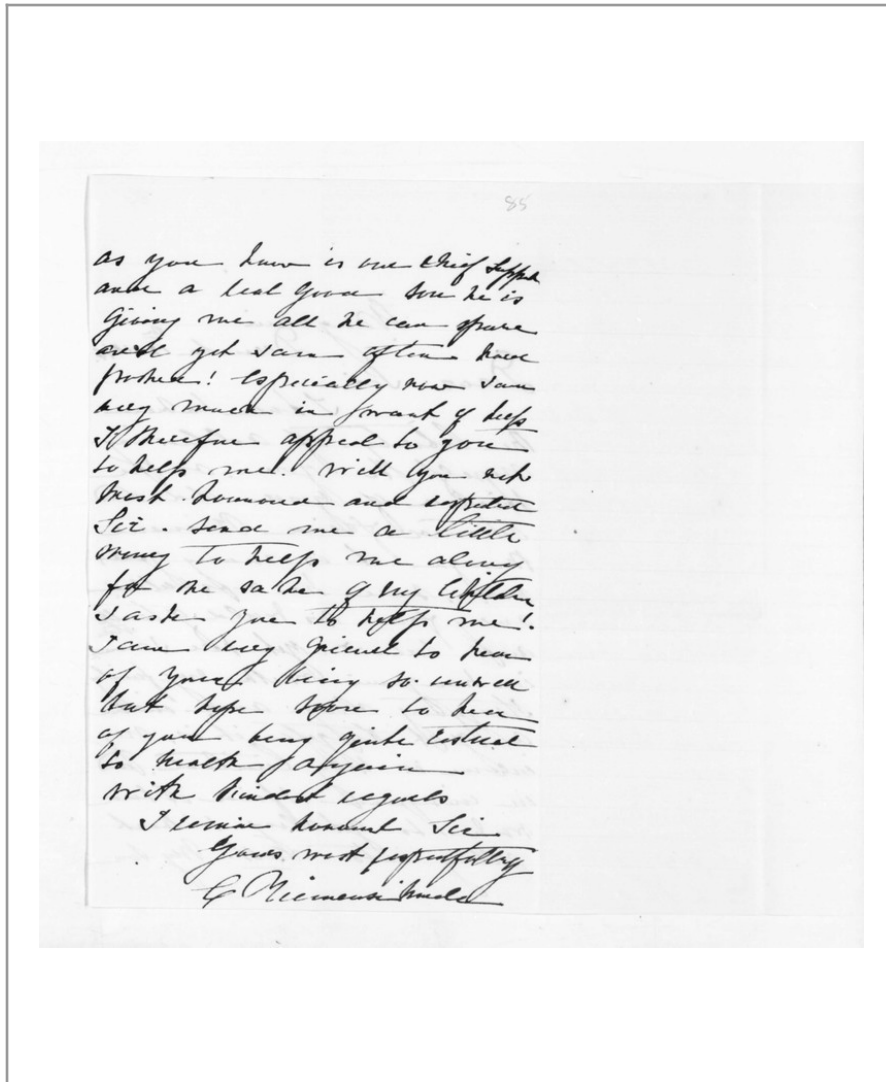 85
as you know is our chief support
and a real good son he is
giving me all he can spare
and yet I am often hard
pushed! Especially now I am
very much in want of help
I therefore appeal to you
to help me. Will you not
most honoured and respected
Sir. send me a little
money to help me along
for the sake of my children
I ask you to help me!
I am very grieved to hear
of your being so unwell
but hope soon to hear
of your being quite restored
to health again
With kindest regards
I remain honoured Sir
Yours most respectfully
C